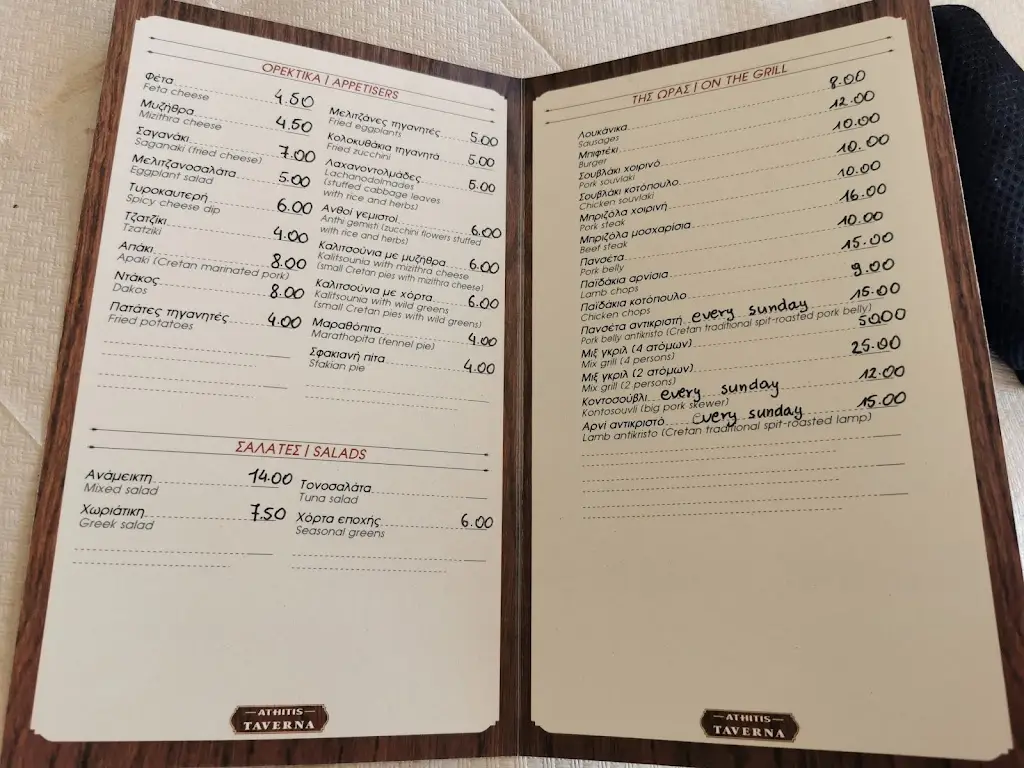 ΟΡΕΚΤΙΚΑ | APPETISERS
Φέτα 4.50
Feta cheese
Μυζήθρα 4.50
Mizithra cheese
Σαγανάκι 7.00
Saganaki (fried cheese)
Μελιτζανοσαλάτα 5.00
Eggplant salad
Τυροκαυτερή 6.00
Spicy cheese dip
Τζατζίκι 4.00
Tzatziki
Απάκι 8.00
Apaki (Cretan marinated pork)
Ντάκος 8.00
Dakos
Πατάτες τηγανητές 4.00
Fried potatoes
Μελιτζάνες τηγανητές 5.00
Fried eggplants
Κολοκυθάκια τηγανητά 5.00
Fried zucchini
Λαχανοντολμάδες 5.00
Lachanodolmades
(stuffed cabbage leaves
with rice and herbs)
Ανθοί γεμιστοί 6.00
Anthi gemisti (zucchini flowers stuffed
with rice and herbs)
Καλιτσούνια με μυζήθρα 6.00
Kalitsounia with mizithra cheese
(small Cretan pies with mizithra cheese)
Καλιτσούνια με χόρτα 6.00
Kalitsounia with wild greens
(small Cretan pies with wild greens)
Μαραθόπιτα 4.00
Marathopita (fennel pie)
Σφακιανή πίτα 4.00
Sfakian pie
ΣΑΛΑΤΕΣ | SALADS
Ανάμεικτη 14.00
Mixed salad
Χωριάτικη 7.50
Greek salad
Τονοσαλάτα
Tuna salad
Χόρτα εποχής 6.00
Seasonal greens
ATHITIS
TAVERNA
ΤΗΣ ΩΡΑΣ | ON THE GRILL
Λουκάνικα 8.00
Sausages
Μπιφτέκι 12.00
Burger
Σουβλάκι χοιρινό 10.00
Pork souvlaki
Σουβλάκι κοτόπουλο 10.00
Chicken souvlaki
Μπριζόλα χοιρινή 10.00
Pork steak
Μπριζόλα μοσχαρίσια 16.00
Beef steak
Πανσέτα 10.00
Pork belly
Παϊδάκια αρνίσια 15.00
Lamb chops
Παϊδάκια κοτόπουλο 9.00
Chicken chops
Πανσέτα αντικριστή every sunday 15.00
Pork belly antikristo (Cretan traditional spit-roasted pork belly)
Μιξ γκριλ (4 ατόμων) 50.00
Mix grill (4 persons)
Μιξ γκριλ (2 ατόμων) 25.00
Mix grill (2 persons)
Κοντοσούβλι every sunday 12.00
Kontosouvli (big pork skewer)
Αρνί αντικριστό every sunday 15.00
Lamb antikristo (Cretan traditional spit-roasted lamp)
ATHITIS
TAVERNA